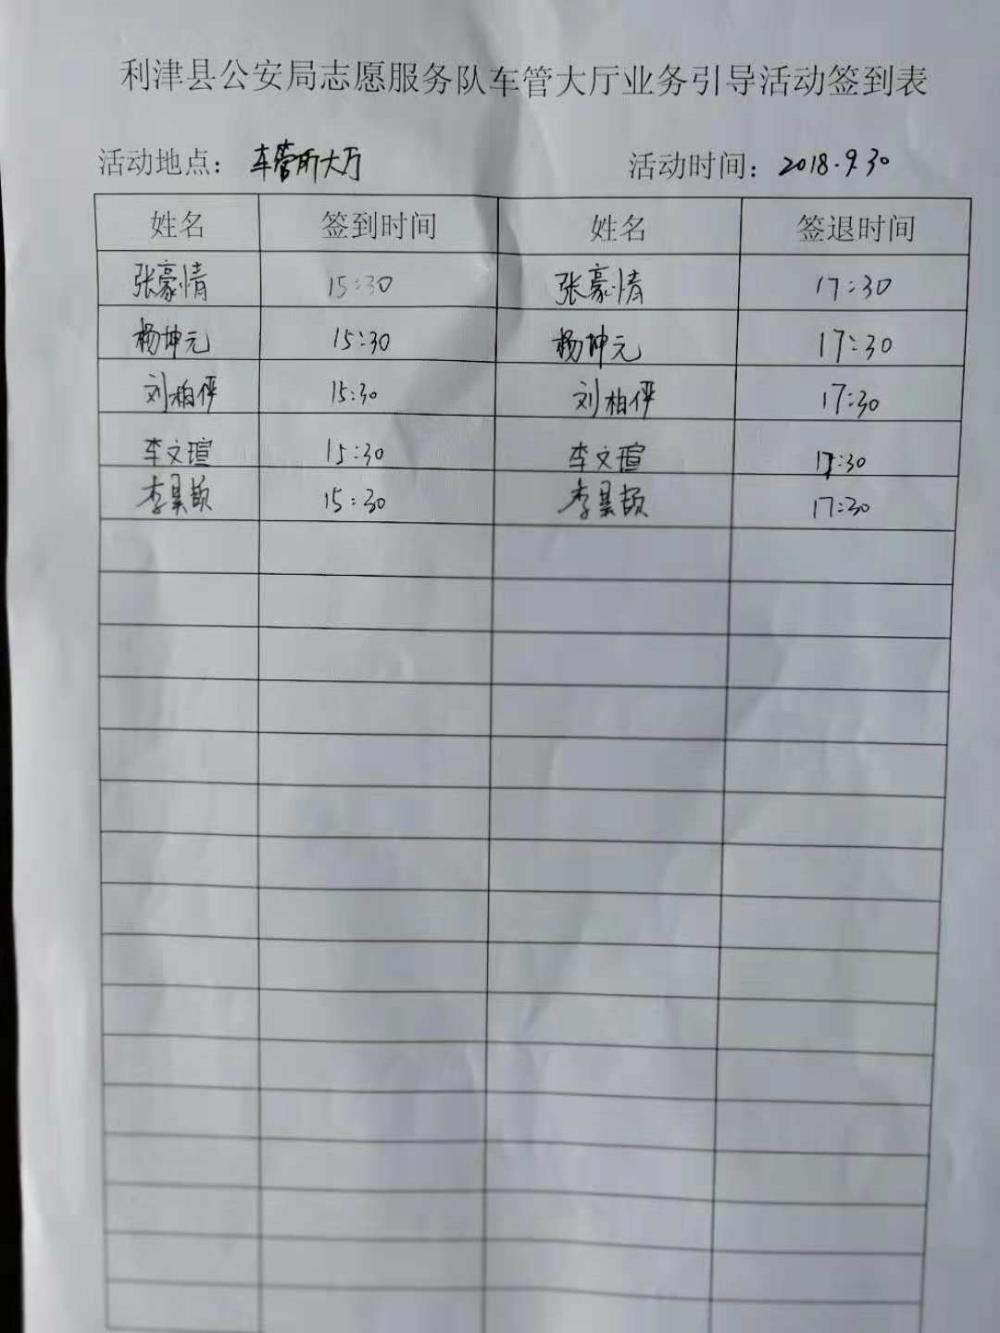 利津县公安局志愿服务队车管大厅业务引导活动签到表
活动地点：车管所大厅 活动时间：2018.9.30
姓名 签到时间 姓名 签退时间
张豪情 15:30 张豪情 17:30
杨坤元 15:30 杨坤元 17:30
刘柏伻 15:30 刘柏伻 17:30
李文瑄 15:30 李文瑄 17:30
李昊颉 15:30 李昊颉 17:30